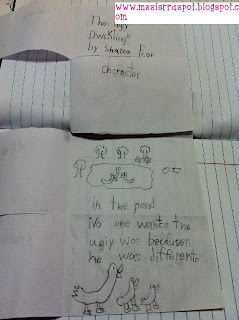 www.mssierraspol.blogspot.com
The ugly
Duckling
by Sharon
Character
in the pond
No one wanto the
ugly wos becauser
he was differento